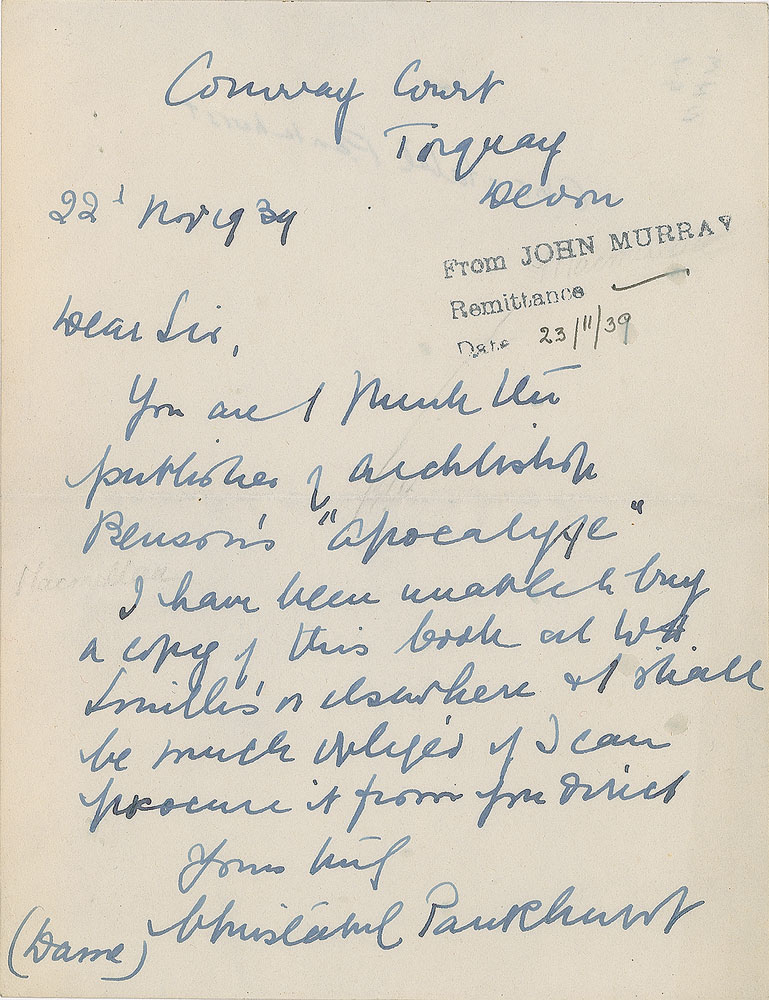 Conway Court
Torquay
Devon
22d Nov 1939
From JOHN MURRAY
Remittance
Date 23/11/39
Dear Sir,
You are I think the
publisher of Archbishop
Benson's "Apocalypse"
I have been unable to buy
a copy of this book at WH
Smith's or elsewhere & I shall
be much obliged if I can
procure it from you direct
Yours truly
Christabel Pankhurst
(Dame)
Macmillan